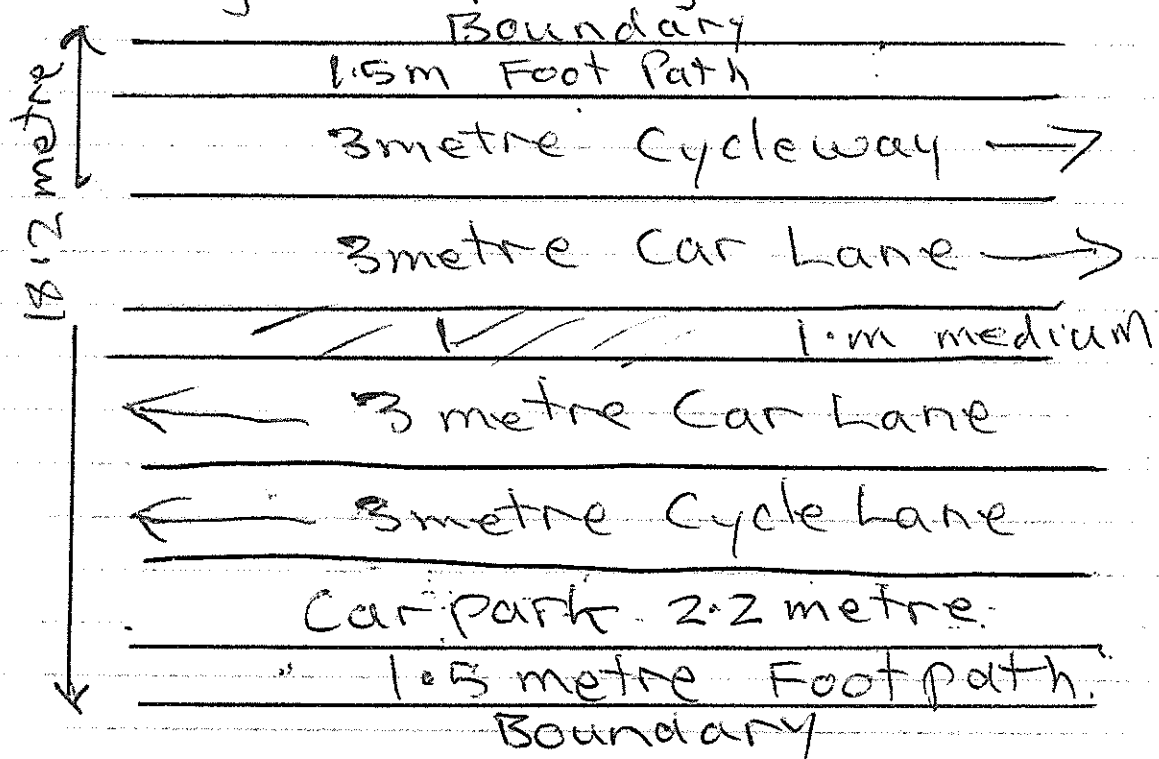 Boundary
1.5m Foot Path
3metre Cycleway
3metre Car Lane
18.2 metre
1.m medium
3 metre Car Lane
3metre Cycle Lane
Car park 2.2 metre.
1.5 metre Footpath.
Boundary